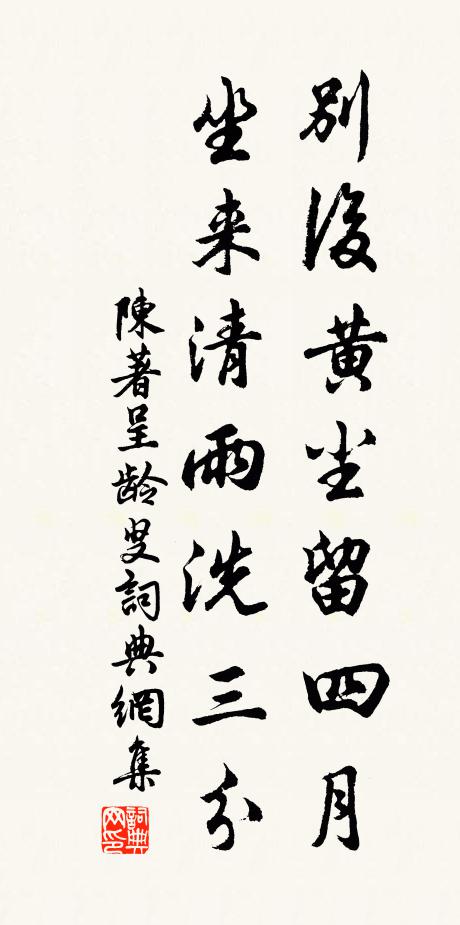 別後黄尘留四月
坐来清雨洗三分
陳著呈龄叟詞典網集
詞典网印